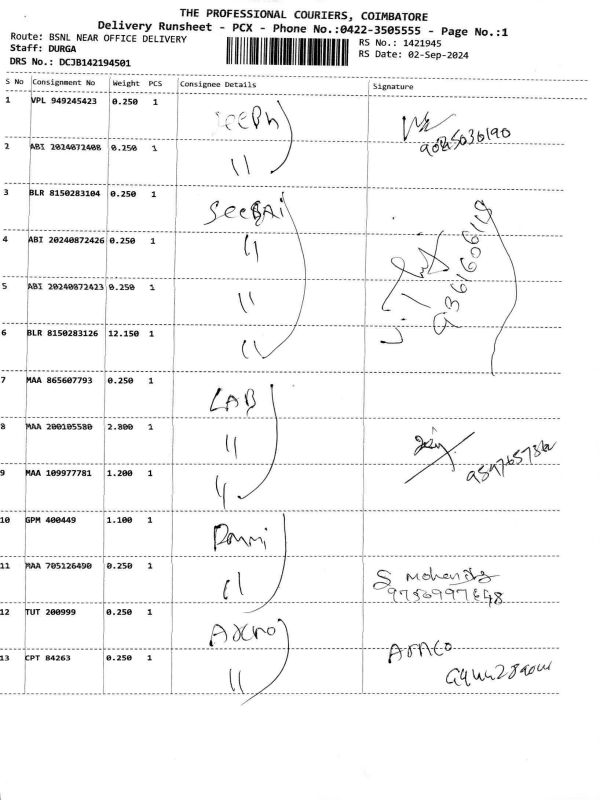 THE PROFESSIONAL COURIERS, COIMBATORE
Delivery Runsheet - PCX - Phone No.:0422-3505555 - Page No.:1
Route: BSNL NEAR OFFICE DELIVERY
RS No.: 1421945
Staff: DURGA
RS Date: 02-Sep-2024
DRS No.: DCJB142194501
S No Consignment No Weight PCS Consignee Details Signature
1 VPL 949245423 0.250 1
2 ABI 2024072408 0.250 1 "
3 BLR 8150283104 0.250 1
4 ABI 20240872426 0.250 1 "
5 ABI 20240872423 0.250 1 "
6 BLR 8150283126 12.150 1 "
7 MAA 865607793 0.250 1 LAB
8 MAA 200105580 2.800 1 "
9 MAA 109977781 1.200 1 "
10 GPM 400449 1.100 1
11 MAA 705126490 0.250 1 " S
12 TUT 200999 0.250 1
13 CPT 84263 0.250 1 "